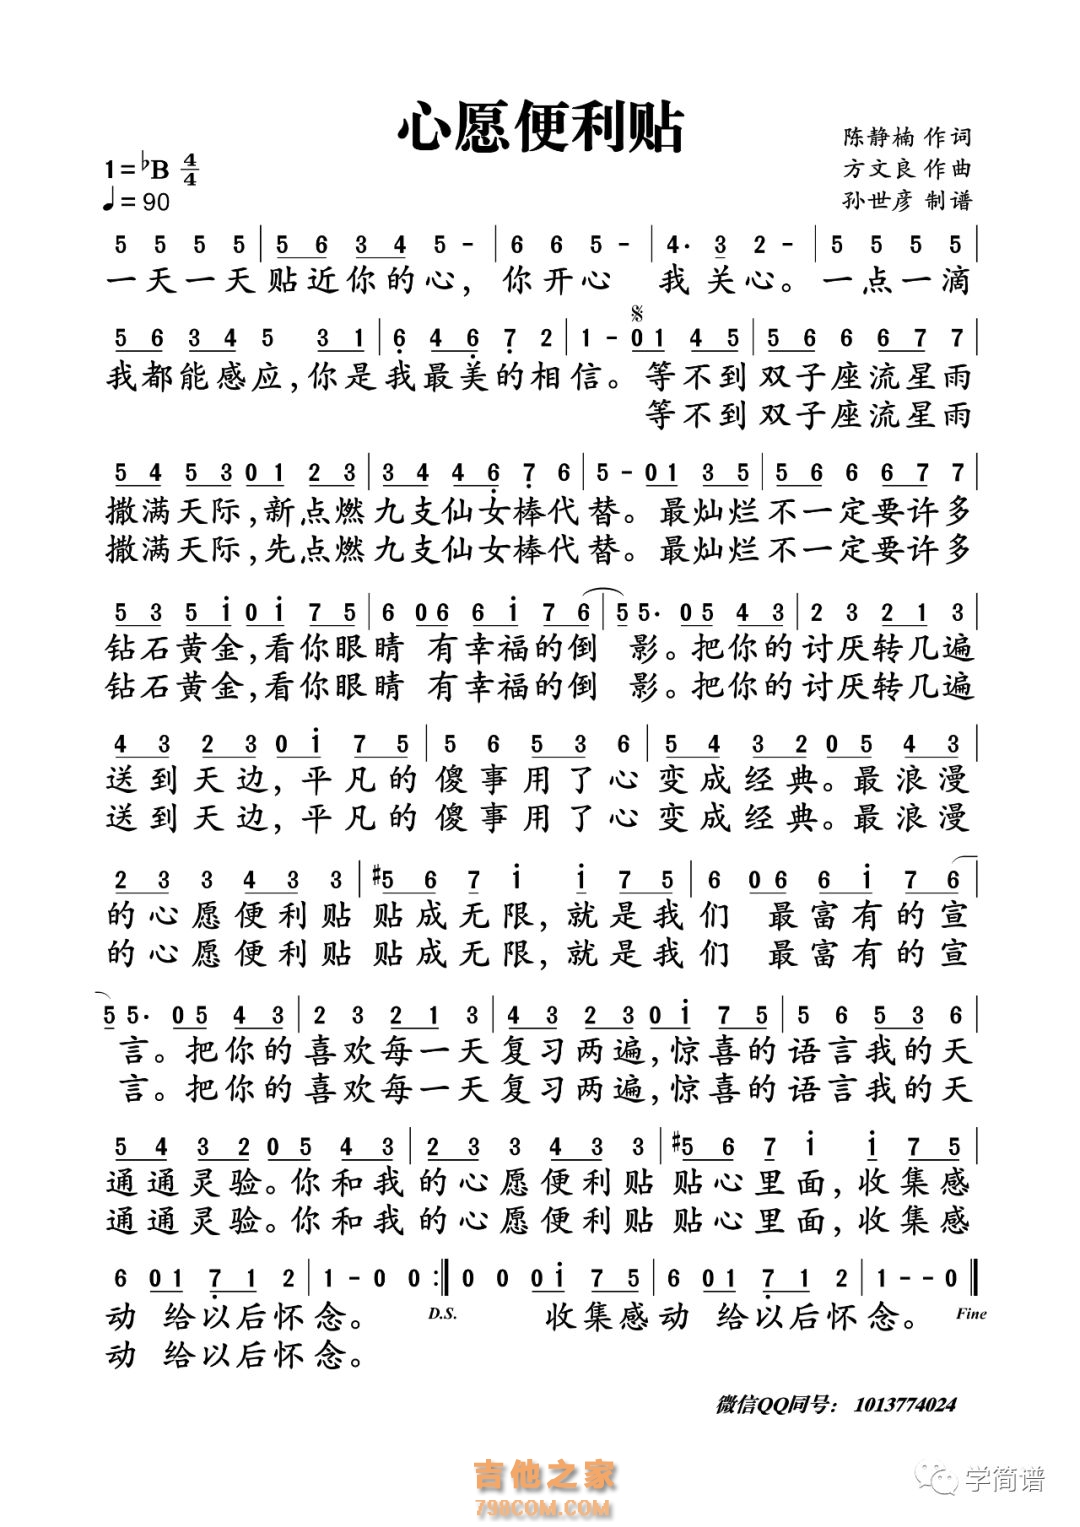 心愿便利贴
陈静楠 作词
1=♭B 4/4
方文良 作曲
♩=90
孙世彦 制谱
5 5 5 5 | 5 6 3 4 5 - | 6 6 5 - | 4· 3 2 - | 5 5 5 5 |
一天一天 贴近你的心，你开心 我关心。一点一滴
5 6 3 4 5 3 1 | 6 4 6 7 2 | 1 - 0 1 4 5 | 5 6 6 6 7 7 |
我都能感应，你是我最美的相信。等不到双子座流星雨
等不到双子座流星雨
5 4 5 3 0 1 2 3 | 3 4 4 6 7 6 | 5 - 0 1 3 5 | 5 6 6 6 7 7 |
撒满天际，新点燃九支仙女棒代替。最灿烂不一定要许多
撒满天际，先点燃九支仙女棒代替。最灿烂不一定要许多
5 3 5 i 0 i 7 5 | 6 0 6 6 i 7 6 | 5 5· 0 5 4 3 | 2 3 2 1 3 |
钻石黄金，看你眼睛 有幸福的倒 影。把你的讨厌转几遍
钻石黄金，看你眼睛 有幸福的倒 影。把你的讨厌转几遍
4 3 2 3 0 i 7 5 | 5 6 5 3 6 | 5 4 3 2 0 5 4 3 |
送到天边，平凡的傻事用了心 变成经典。最浪漫
送到天边，平凡的傻事用了心 变成经典。最浪漫
2 3 3 4 3 3 | #5 6 7 i i 7 5 | 6 0 6 6 i 7 6 |
的心愿便利贴 贴成无限，就是我们 最富有的宣
的心愿便利贴 贴成无限，就是我们 最富有的宣
5 5· 0 5 4 3 | 2 3 2 1 3 | 4 3 2 3 0 i 7 5 | 5 6 5 3 6 |
言。把你的喜欢每一天复习两遍，惊喜的语言我的天
言。把你的喜欢每一天复习两遍，惊喜的语言我的天
5 4 3 2 0 5 4 3 | 2 3 3 4 3 3 | #5 6 7 i i 7 5 |
通通灵验。你和我的心愿便利贴 贴心里面，收集感
通通灵验。你和我的心愿便利贴 贴心里面，收集感
6 0 1 7 1 2 | 1 - 0 0 :‖ 0 0 0 i 7 5 | 6 0 1 7 1 2 | 1 - - 0 ‖
动 给以后怀念。 D.S. 收集感动 给以后怀念。 Fine
动 给以后怀念。
微信QQ同号： 1013774024
吉他之家
798COM.COM
学简谱